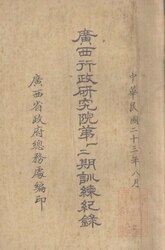 中華民國二十三年八月
廣西行政研究院第一二期訓練紀錄
廣西省政府總務處編印